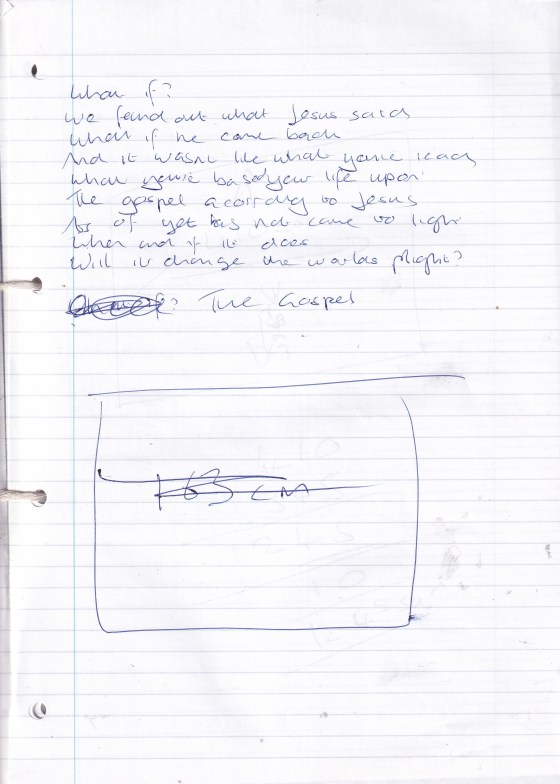 What if?
We found out what Jesus said
What if he came back
And it wasnt like what youve read
What youve based your life upon
The gospel according to Jesus
As of yet has not come to light
When and if it does
Will it change the worlds plight?
The Gospel
163 CM